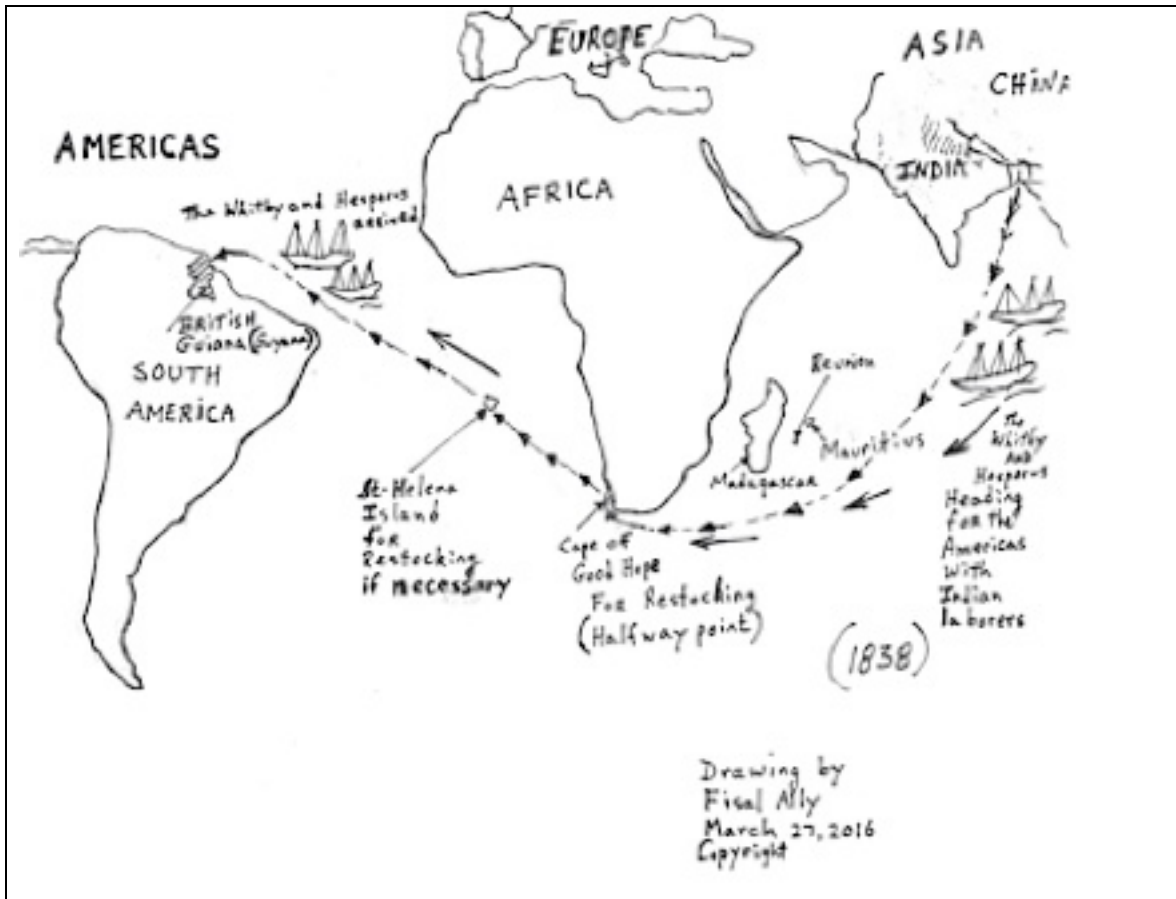 EUROPE
ASIA
CHINA
AMERICAS
AFRICA
INDIA
The Whitby and Hesperus
arrived
BRITISH
Guiana (Guyana)
SOUTH
AMERICA
Reunion
Mauritius
Madagascar
The
Whitby
AND
Hesperus
Heading
for the
Americas
With
Indian
laborers
St-Helena
Island
for
Restocking
if necessary
Cape of
Good Hope
For Restocking
(Halfway point)
(1838)
Drawing by
Fisal Ally
March 27, 2016
Copyright